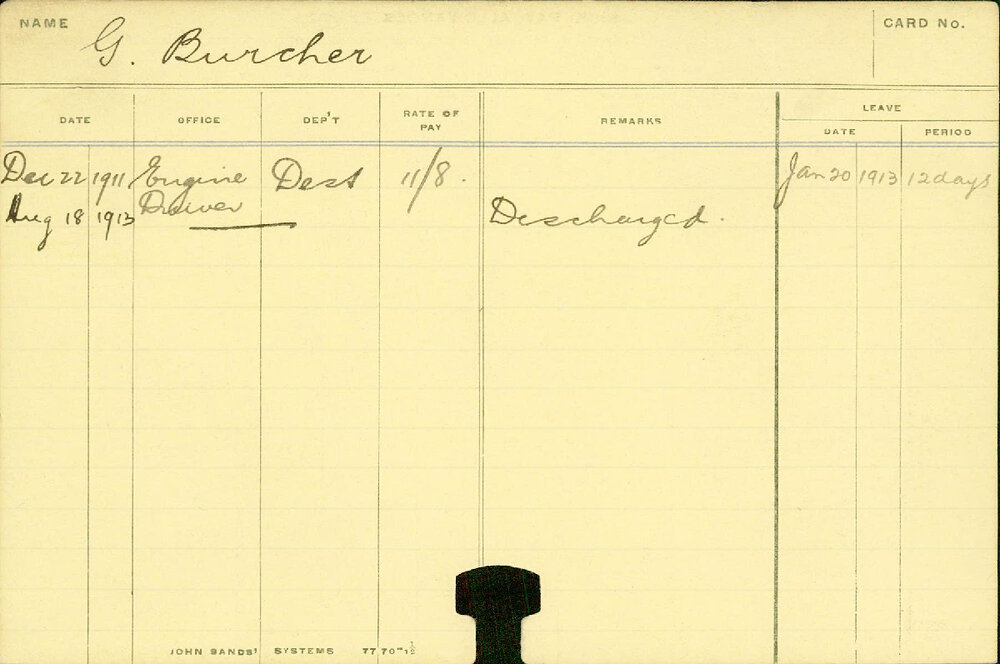 NAME G. Burcher CARD No.
DATE OFFICE DEP'T RATE OF PAY REMARKS LEAVE
DATE PERIOD
Dec 22 1911 Engine Dest 11/8. Jan 20 1913 12 days
Aug 18 1913 Driver Discharged.
JOHN SANDS' SYSTEMS 7770